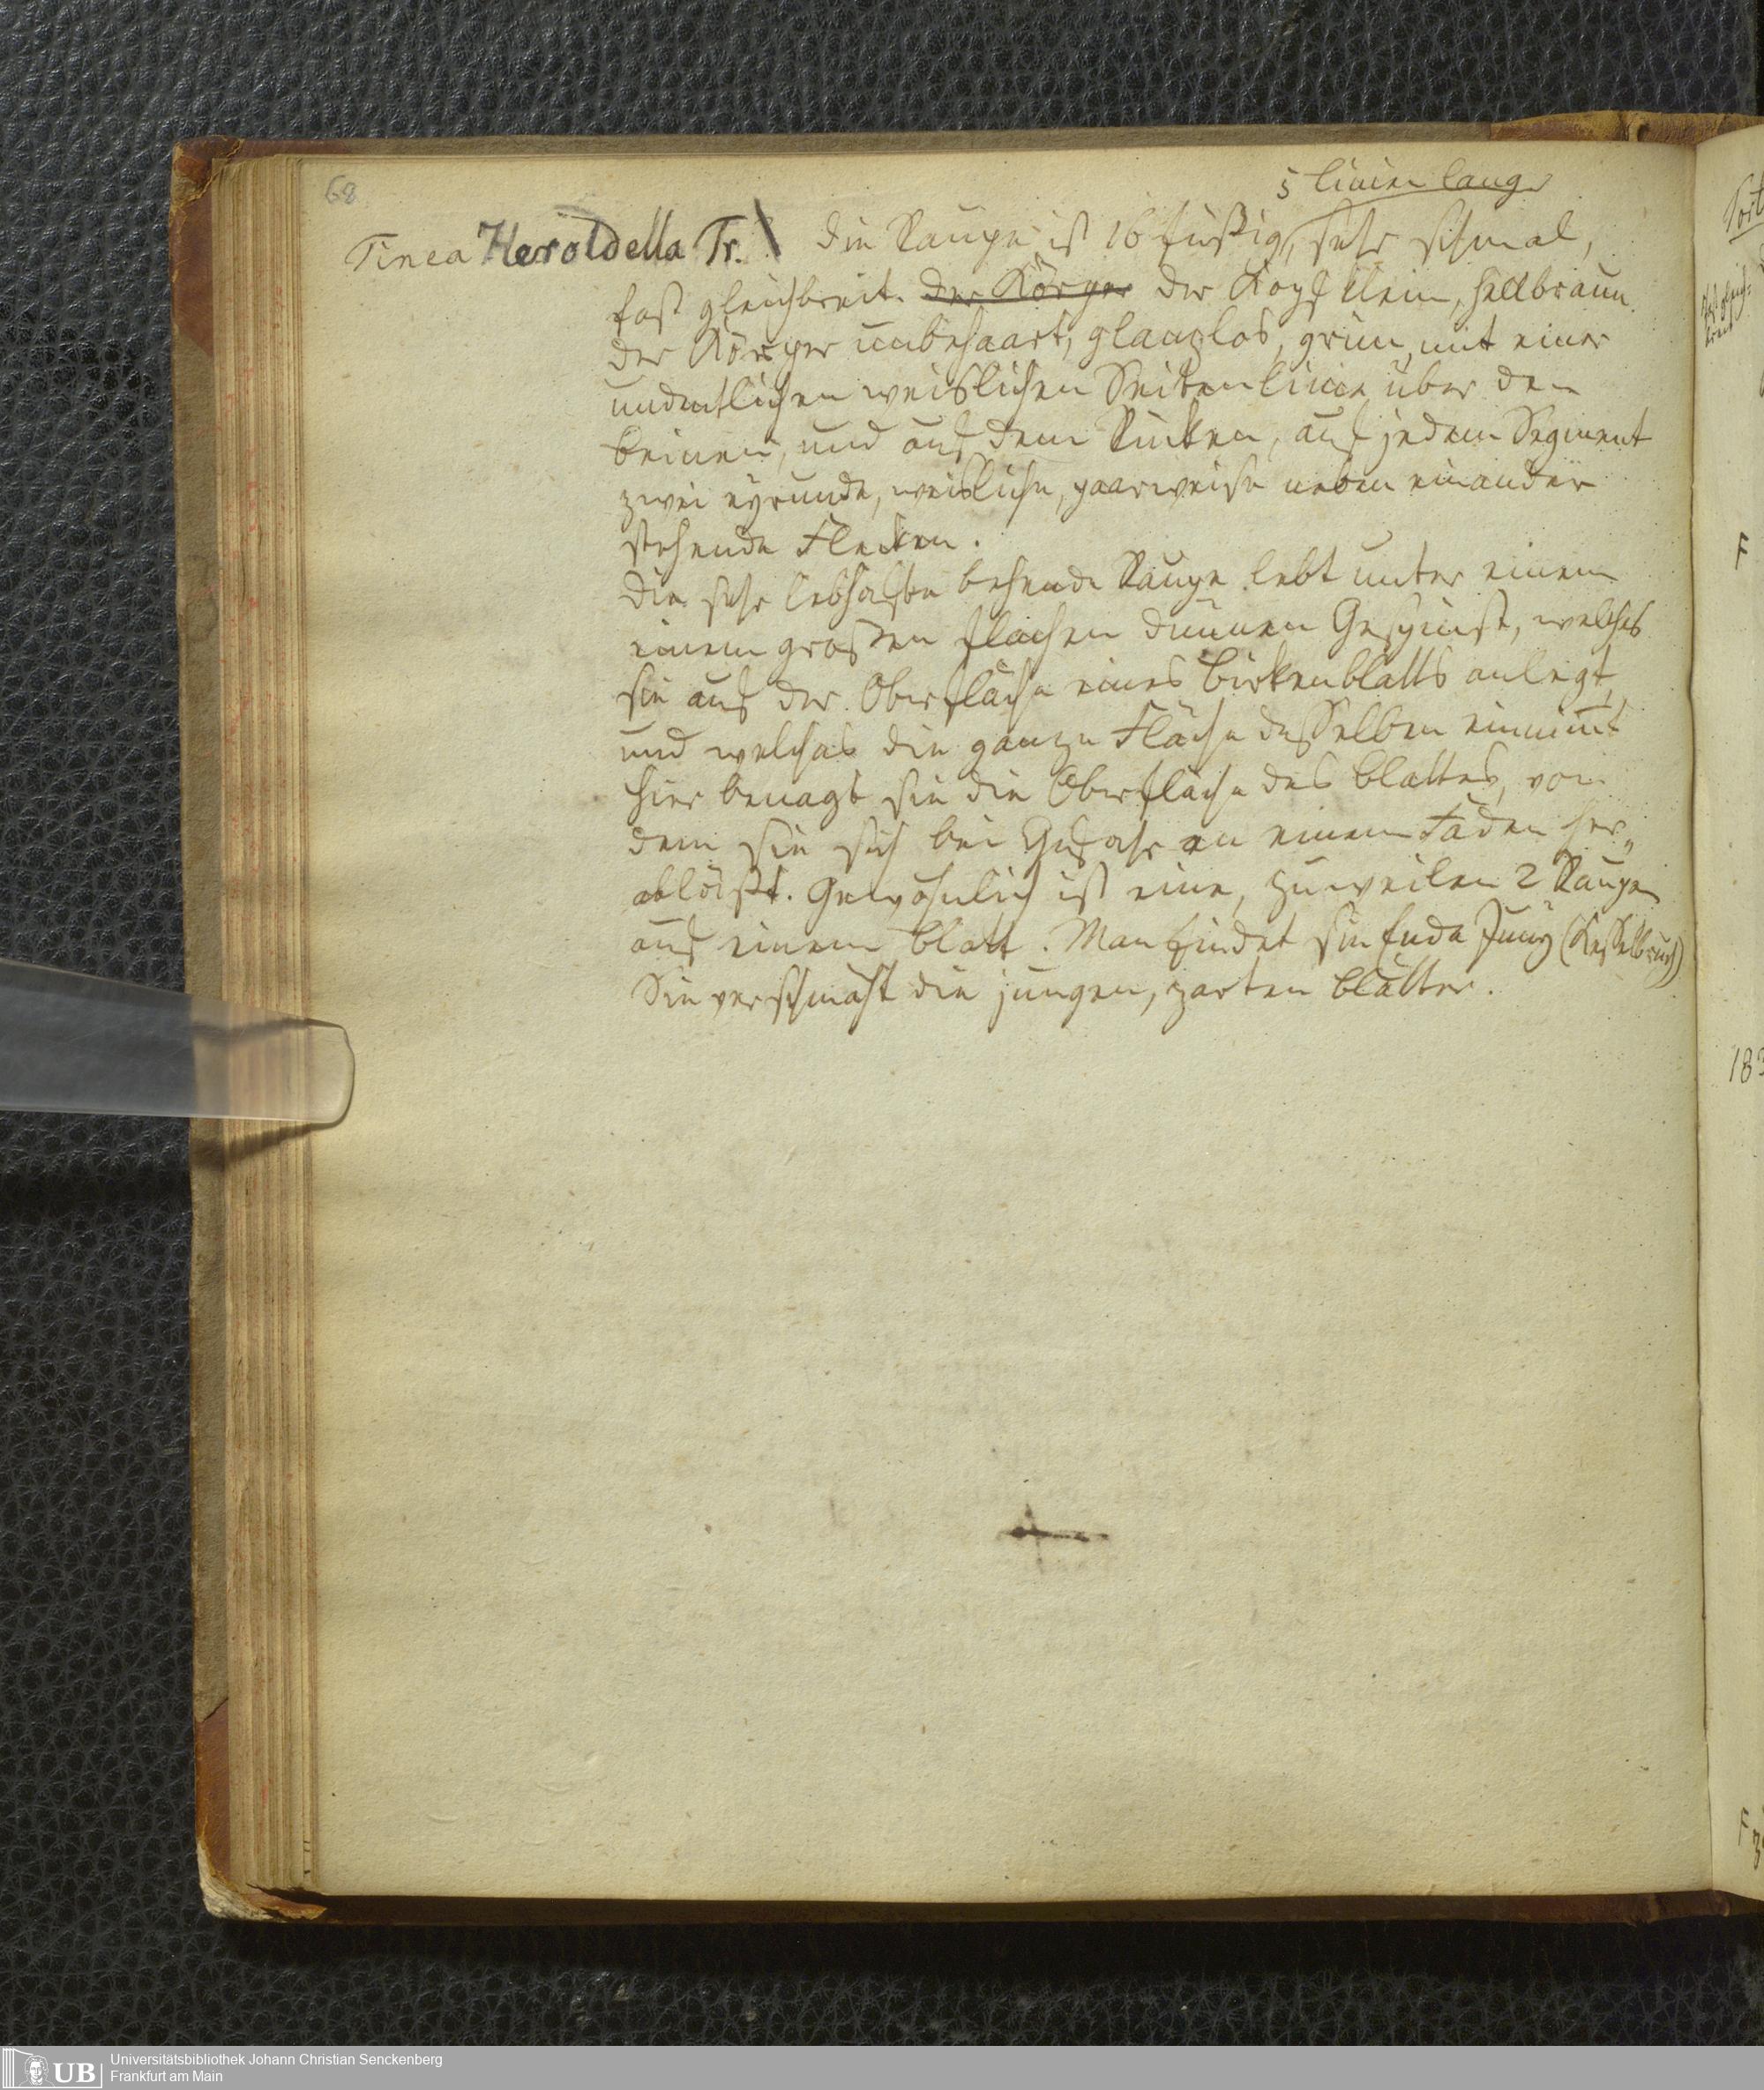 68
5 linien lang
Tinea Heroldella Tr. \ die Raupe ist 16 füßig, sehr schmal,
fast gleichbreit. der Körper der Kopf klein, hellbraun
der Körper unbehaart, glanzlos, grün, mit einer
undeutlichen weislichen Seitenlinie über den
beinen, und auf dem Rücken, auf jedem Segment
zwei eyrunde, weisliche, paarweise neben einander
stehende Flecken.
die sehr lebhafte behende Raupe lebt unter einem
einem großen flachen dünnen Gespinst, welches
sie auf der Oberfläche eines Birkenblatts anlegt,
und welches die ganze Fläche desselben einnimt
hier benagt sie die Oberfläche des blattes, von
dem sie sich bei Gefahr an einem Faden her„
abläßt. Gewöhnlich ist eine, zuweilen 2 Raupen
auf einem blatt. Man findet sie Ende Juny (Kesselbruch)
Sie verschmäht die jungen, zarten blätter.
F
183
F
UB
Universitätsbibliothek Johann Christian Senckenberg
Frankfurt am Main